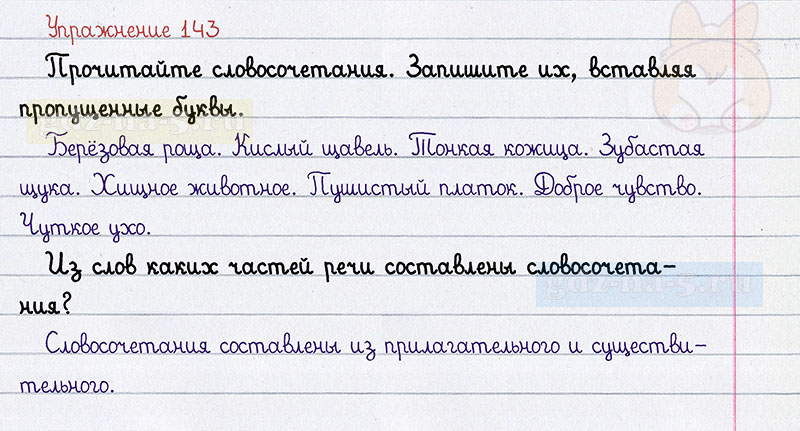 Упражнение 143
Прочитайте словосочетания. Запишите их, вставляя
пропущенные буквы.
Берёзовая роща. Кислый щавель. Тонкая кожица. Зубастая
щука. Хищное животное. Пушистый платок. Доброе чувство.
Чуткое ухо.
Из слов каких частей речи составлены словосочета-
ния?
gdz-na-5.ru
Словосочетания составлены из прилагательного и существи-
тельного.